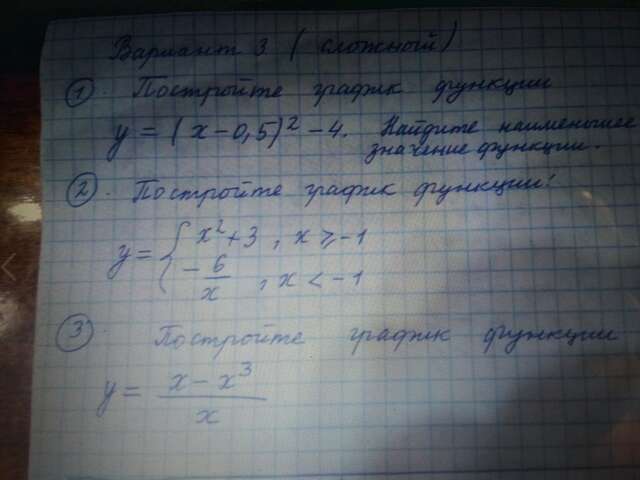 Вариант 3 (сложный)
① Постройте график функции
y = (x - 0,5)² - 4. Найдите наименьшее
значение функции.
② Постройте график функции:
y = { x² + 3, x ≥ -1
- 6/x, x < -1
③ Постройте график функции
y = (x - x³)/x